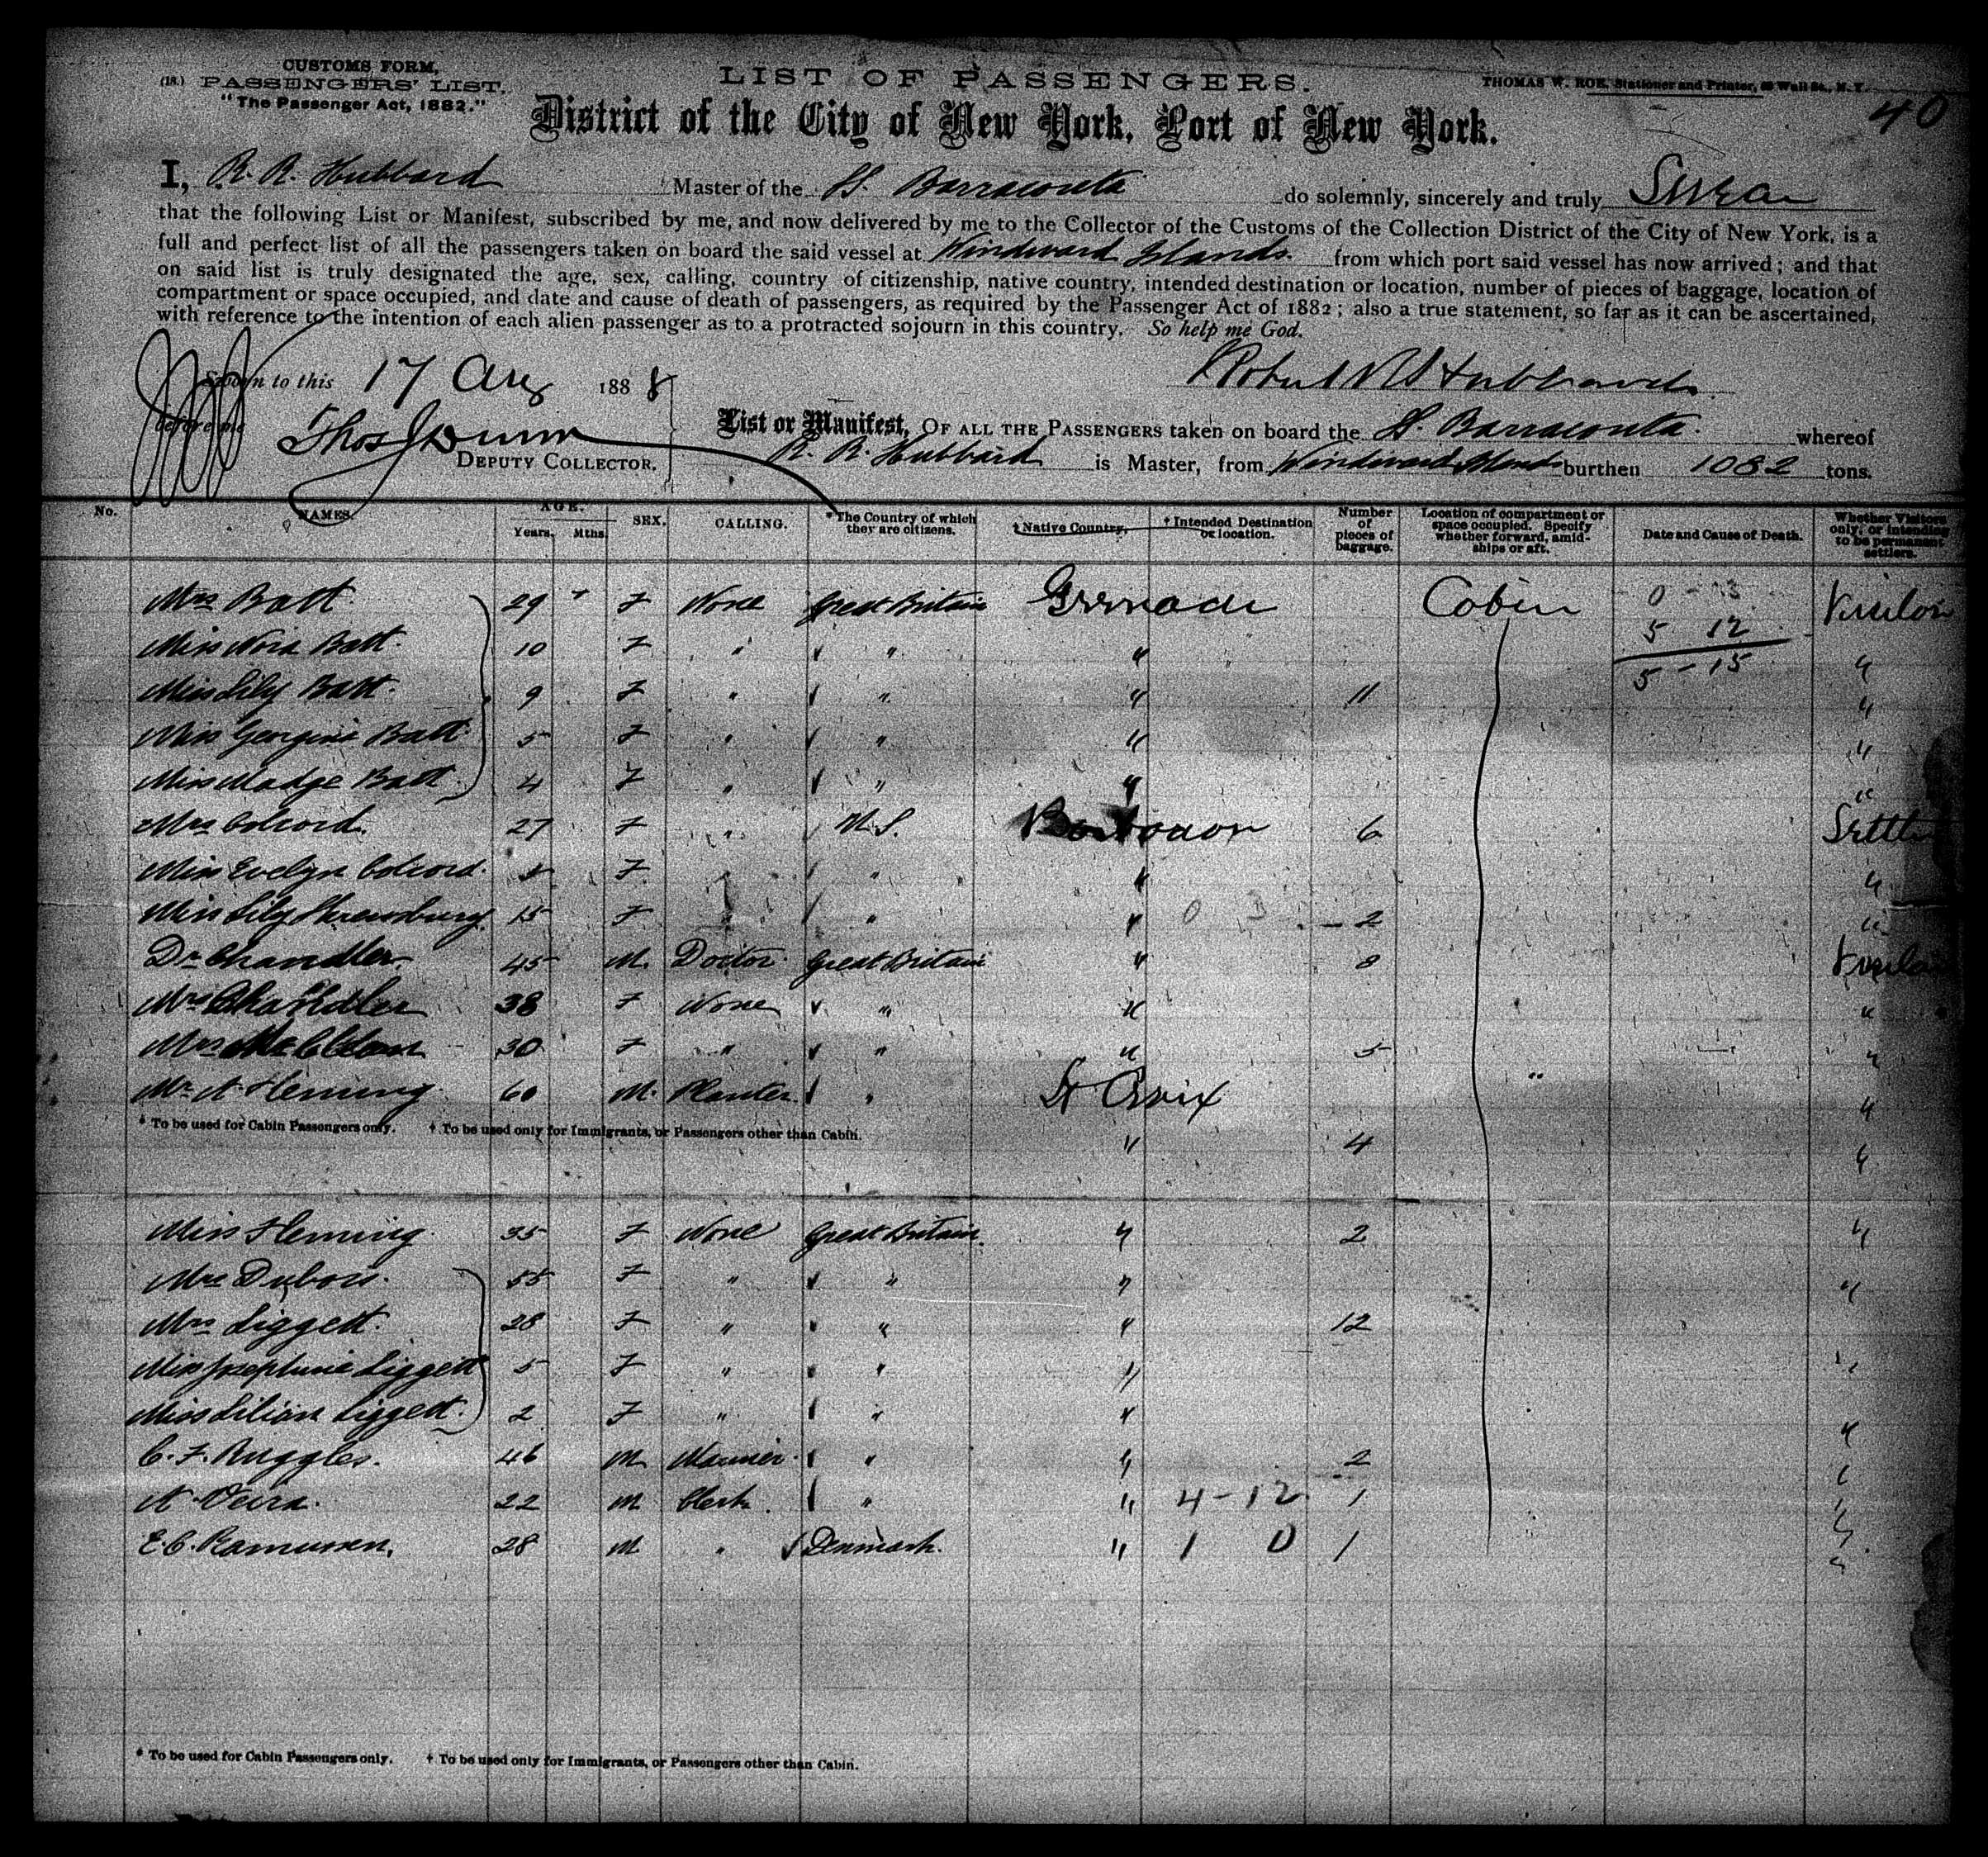 CUSTOMS FORM,
(18.) PASSENGERS' LIST.
"The Passenger Act, 1882."
LIST OF PASSENGERS.
THOMAS W. ROE, Stationer and Printer, Wall St., N.Y.
40
District of the City of New York, Port of New York.
I, R. R. Hubbard Master of the SS. Barracouta do solemnly, sincerely and truly Swear
that the following List or Manifest, subscribed by me, and now delivered by me to the Collector of the Customs of the Collection District of the City of New York, is a
full and perfect list of all the passengers taken on board the said vessel at Windward Islands. from which port said vessel has now arrived; and that
on said list is truly designated the age, sex, calling, country of citizenship, native country, intended destination or location, number of pieces of baggage, location of
compartment or space occupied, and date and cause of death of passengers, as required by the Passenger Act of 1882; also a true statement, so far as it can be ascertained,
with reference to the intention of each alien passenger as to a protracted sojourn in this country. So help me God.
Sworn to this 17 Aug 1888
before me
Thos J Dunn
DEPUTY COLLECTOR.
Robert R Hubbard
List or Manifest, OF ALL THE PASSENGERS taken on board the SS. Barracouta. whereof
R. R. Hubbard is Master, from Windward Islands burthen 1082 tons.
No. NAMES. AGE. Years. Mths. SEX. CALLING. * The Country of which they are citizens. † Native Country. † Intended Destination or location. Number of pieces of baggage. Location of compartment or space occupied. Specify whether forward, amidships or aft. Date and Cause of Death. Whether Visitors only, or intending to be permanent settlers.
Mrs Batt 29 F None Great Britain Grenada Cabin 0 - 3 Visitor
Miss Nora Batt. 10 F " " " " 5 12 "
Miss Lily Batt. 9 F " " " " 11 5 - 15 "
Miss Georgina Batt 5 F " " " " "
Miss Madge Batt. 4 F " " " " "
Mrs Colcord. 27 F " U.S. Barbados 6 Settler
Miss Evelyn Colcord. F " " " "
Miss Lily Shrewsbury 15 F " " 0 3 2 "
Dr Chandler. 45 M. Doctor Great Britain " 8 Visitor
Mrs Chandler 38 F None " " " "
Mrs 30 F " " " " 5 "
Mr A Fleming 60 M. Planter " St Croix "
* To be used for Cabin Passengers only. † To be used only for Immigrants, or Passengers other than Cabin.
" 4 "
Miss Fleming. 35 F None Great Britain. " 2 "
Mrs Dubois. 55 F " " " " "
Mrs Liggett. 28 F " " " " 12
Miss Josephine Liggett 5 F " " " " "
Miss Lilian Liggett. 2 F " " " " "
C. F. Ruggles. 46 M Mariner " " 2 "
A. Veira. 22 M Clerk. " " 4 - 12 1 "
E. C. Rasmussen, 28 M " Denmark. " 1 0 1 "
* To be used for Cabin Passengers only. † To be used only for Immigrants, or Passengers other than Cabin.